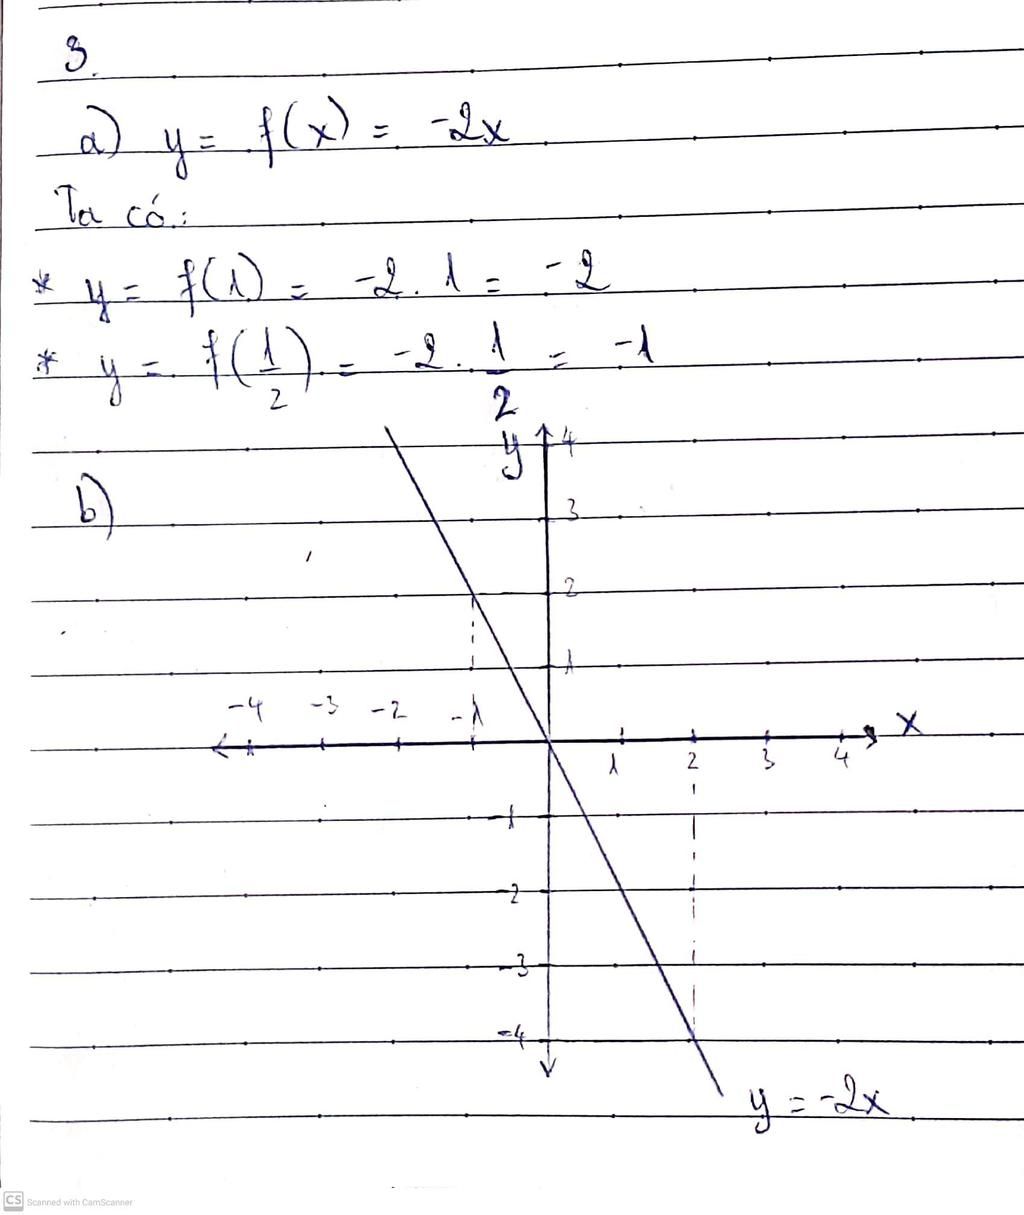 3.
a) y = f(x) = -2x
Ta có:
* y = f(1) = -2 . 1 = -2
* y = f(1/2) = -2 . 1/2 = -1
b)
y
4
3
2
1
-4 -3 -2 -1
x
1 2 3 4
-1
-2
-3
-4
y = -2x
CS Scanned with CamScanner